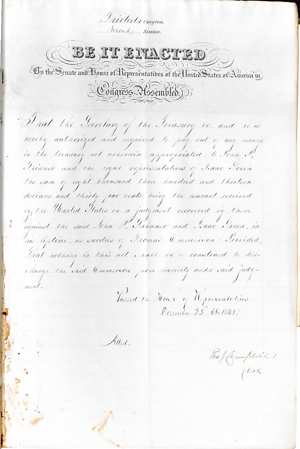 Thirtieth Congress
Second Session
BE IT ENACTED
By the Senate and House of Representatives of the United States of America in
Congress Assembled,
That the Secretary of the Treasury be and he is
hereby authorized and required to pay out of any money
in the treasury not otherwise appropriated to John P.
Skinner and the legal representatives of Isaac Green
the sum of eight thousand three hundred and thirteen
dollars and thirty five cents being the amount received
by the United States on a judgment recovered by them
against the said John P. Skinner and Isaac Green, in
his lifetime, as sureties of Provided,
That nothing in this act shall be construed to dis-
charge the said from liability under said judg-
ment.
Passed the House of Representatives
December 23 1848.
Attest.
Tho. J. Campbell
Clerk